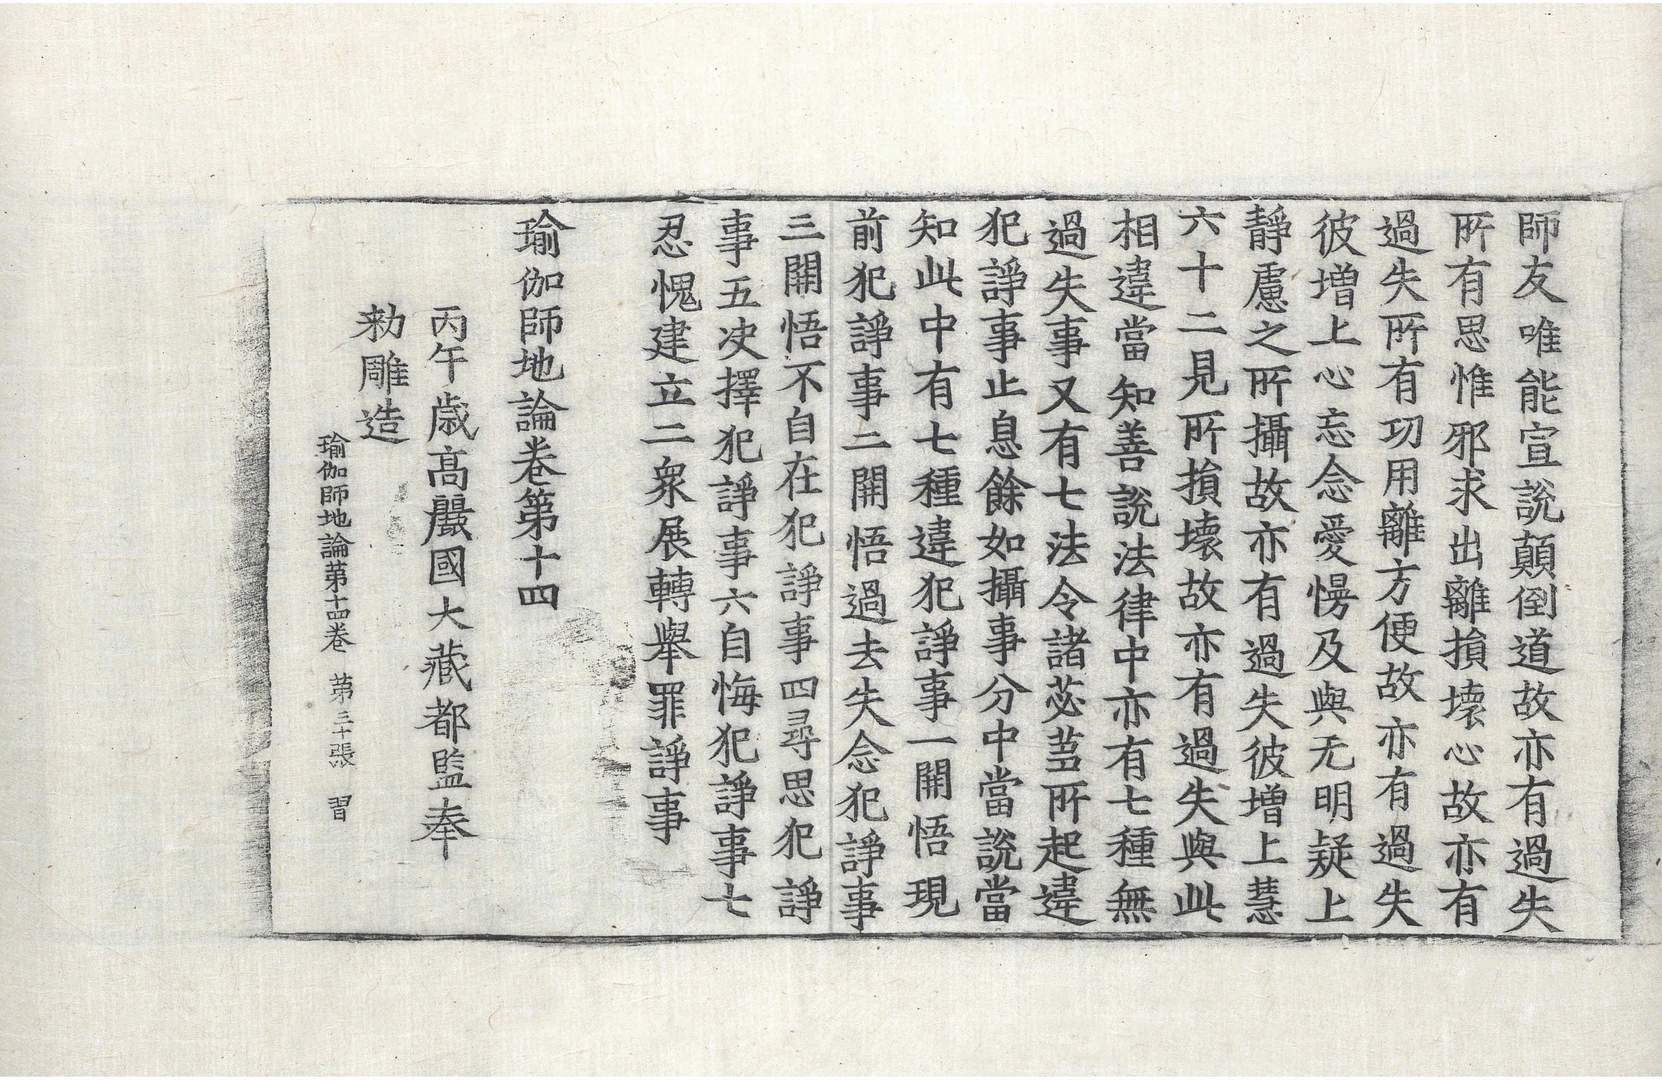 師友唯能宣說顛倒道故亦有過失
所有思惟邪求出離損壞心故亦有
過失所有功用離方便故亦有過失
彼增上心忘念愛慢及與无明疑上
靜慮之所攝故亦有過失彼增上慧
六十二見所損壞故亦有過失與此
相違當知善說法律中亦有七種無
過失事又有七法令諸苾芻所起違
犯諍事止息餘如攝事分中當說當
知此中有七種違犯諍事一開悟現
前犯諍事二開悟過去失念犯諍事
三開悟不自在犯諍事四尋思犯諍
事五决擇犯諍事六自悔犯諍事七
忍愧建立二衆展轉舉罪諍事
瑜伽師地論卷第十四
丙午歲高麗國大藏都監奉
勑雕造
瑜伽師地論第十四卷 第三十張 習